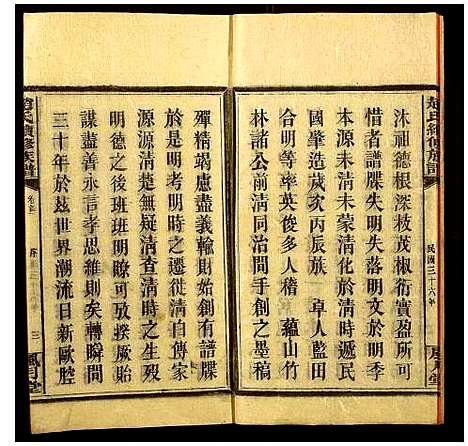 趙氏續修族譜
民國三十六年
沐祖德根深枝茂椒衍實盈所可
惜者譜牒失明失落明文於明季
國肇造歲次丙辰族 卓人藍田
源本清未蒙清化於清時遞民
合明等率英俊多人稽 蘊山竹
林諸公前清同手創之墨稿
殫精竭慮盡義輸財始創有譜牒
是以明考明時之遷徙清自傳家
源源清楚無疑清查清時之生歿
明德之後班班明時瞭於厥始
謀盡善永言孝思維則矣轉瞬間
三十年於玆世界潮流日新歐腔
趙氏續修族譜
卷三
序
三
鳳月堂